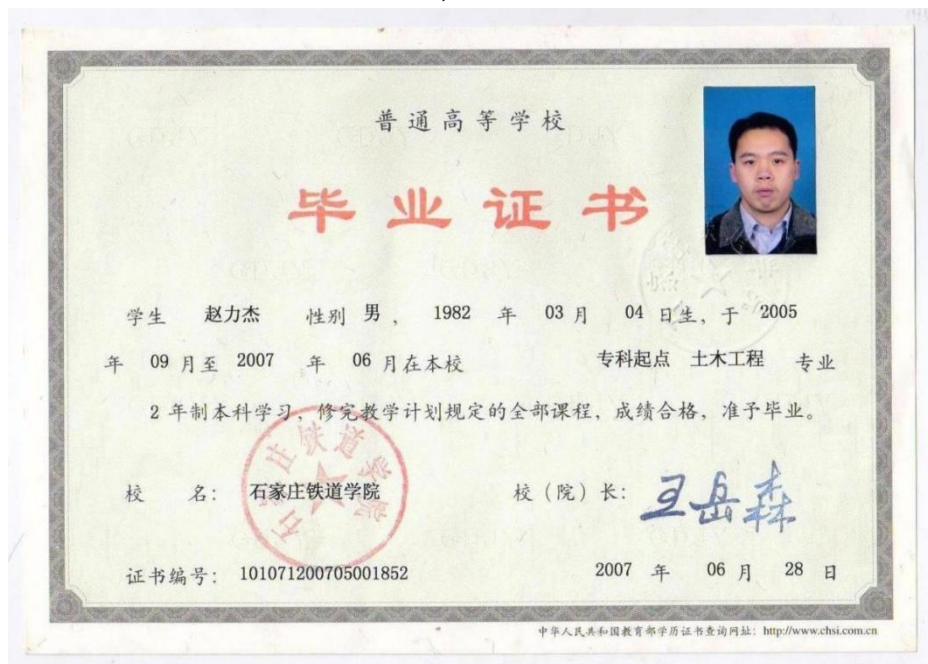 普通高等学校
毕业证书
学生 赵力杰 性别 男 , 1982 年 03 月 04 日生, 于 2005
年 09 月至 2007 年 06 月在本校 专科起点 土木工程 专业
2 年制本科学习, 修完教学计划规定的全部课程, 成绩合格, 准予毕业。
石家庄铁道学院
校 名: 石家庄铁道学院 校(院)长: 王岳森
证书编号: 101071200705001852 2007 年 06 月 28 日
中华人民共和国教育部学历证书查询网址: http://www.chsi.com.cn